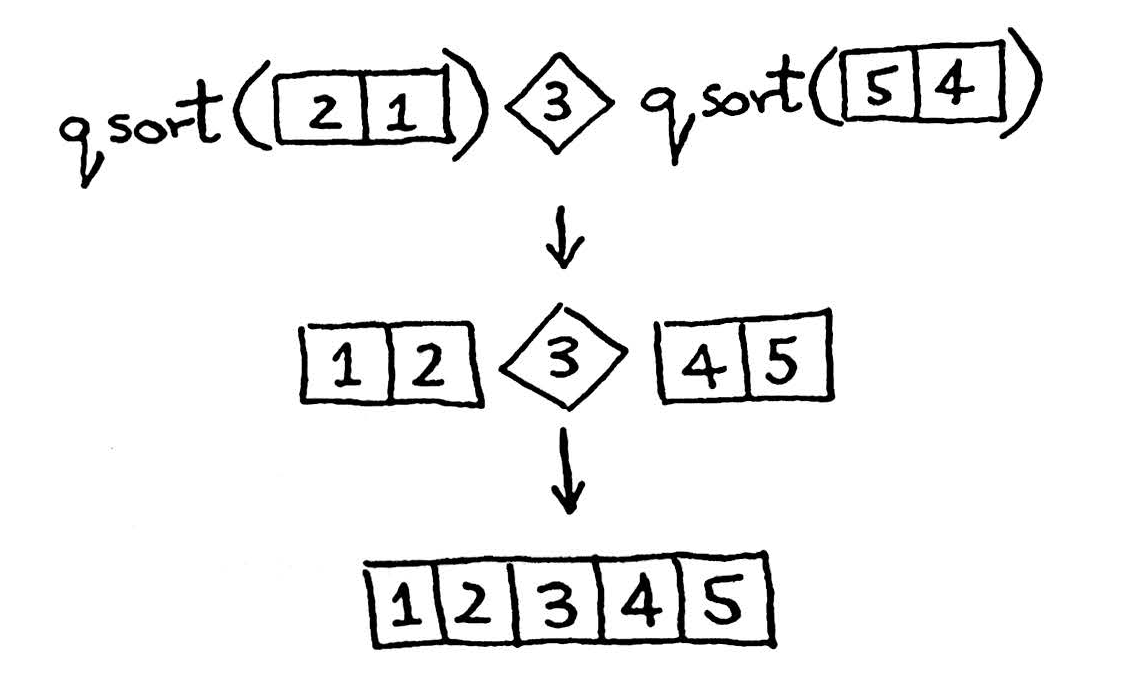 qsort(2 1) 3 qsort(5 4)
1 2 3 4 5
1 2 3 4 5